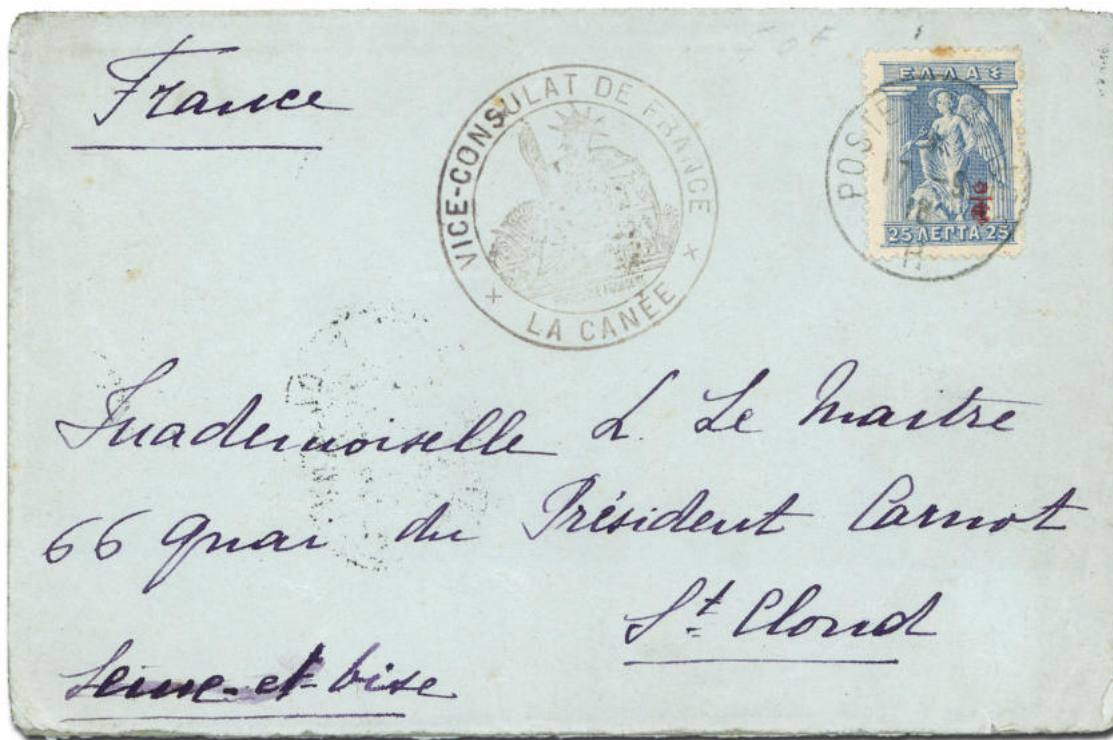 France
VICE-CONSULAT DE FRANCE
LA CANÉE
ΕΛΛΑΣ
25 ΛΕΠΤΑ 25
POSTE
Mademoiselle L. Le Maitre
66 quai du Président Carnot
St Cloud
Seine-et-Oise